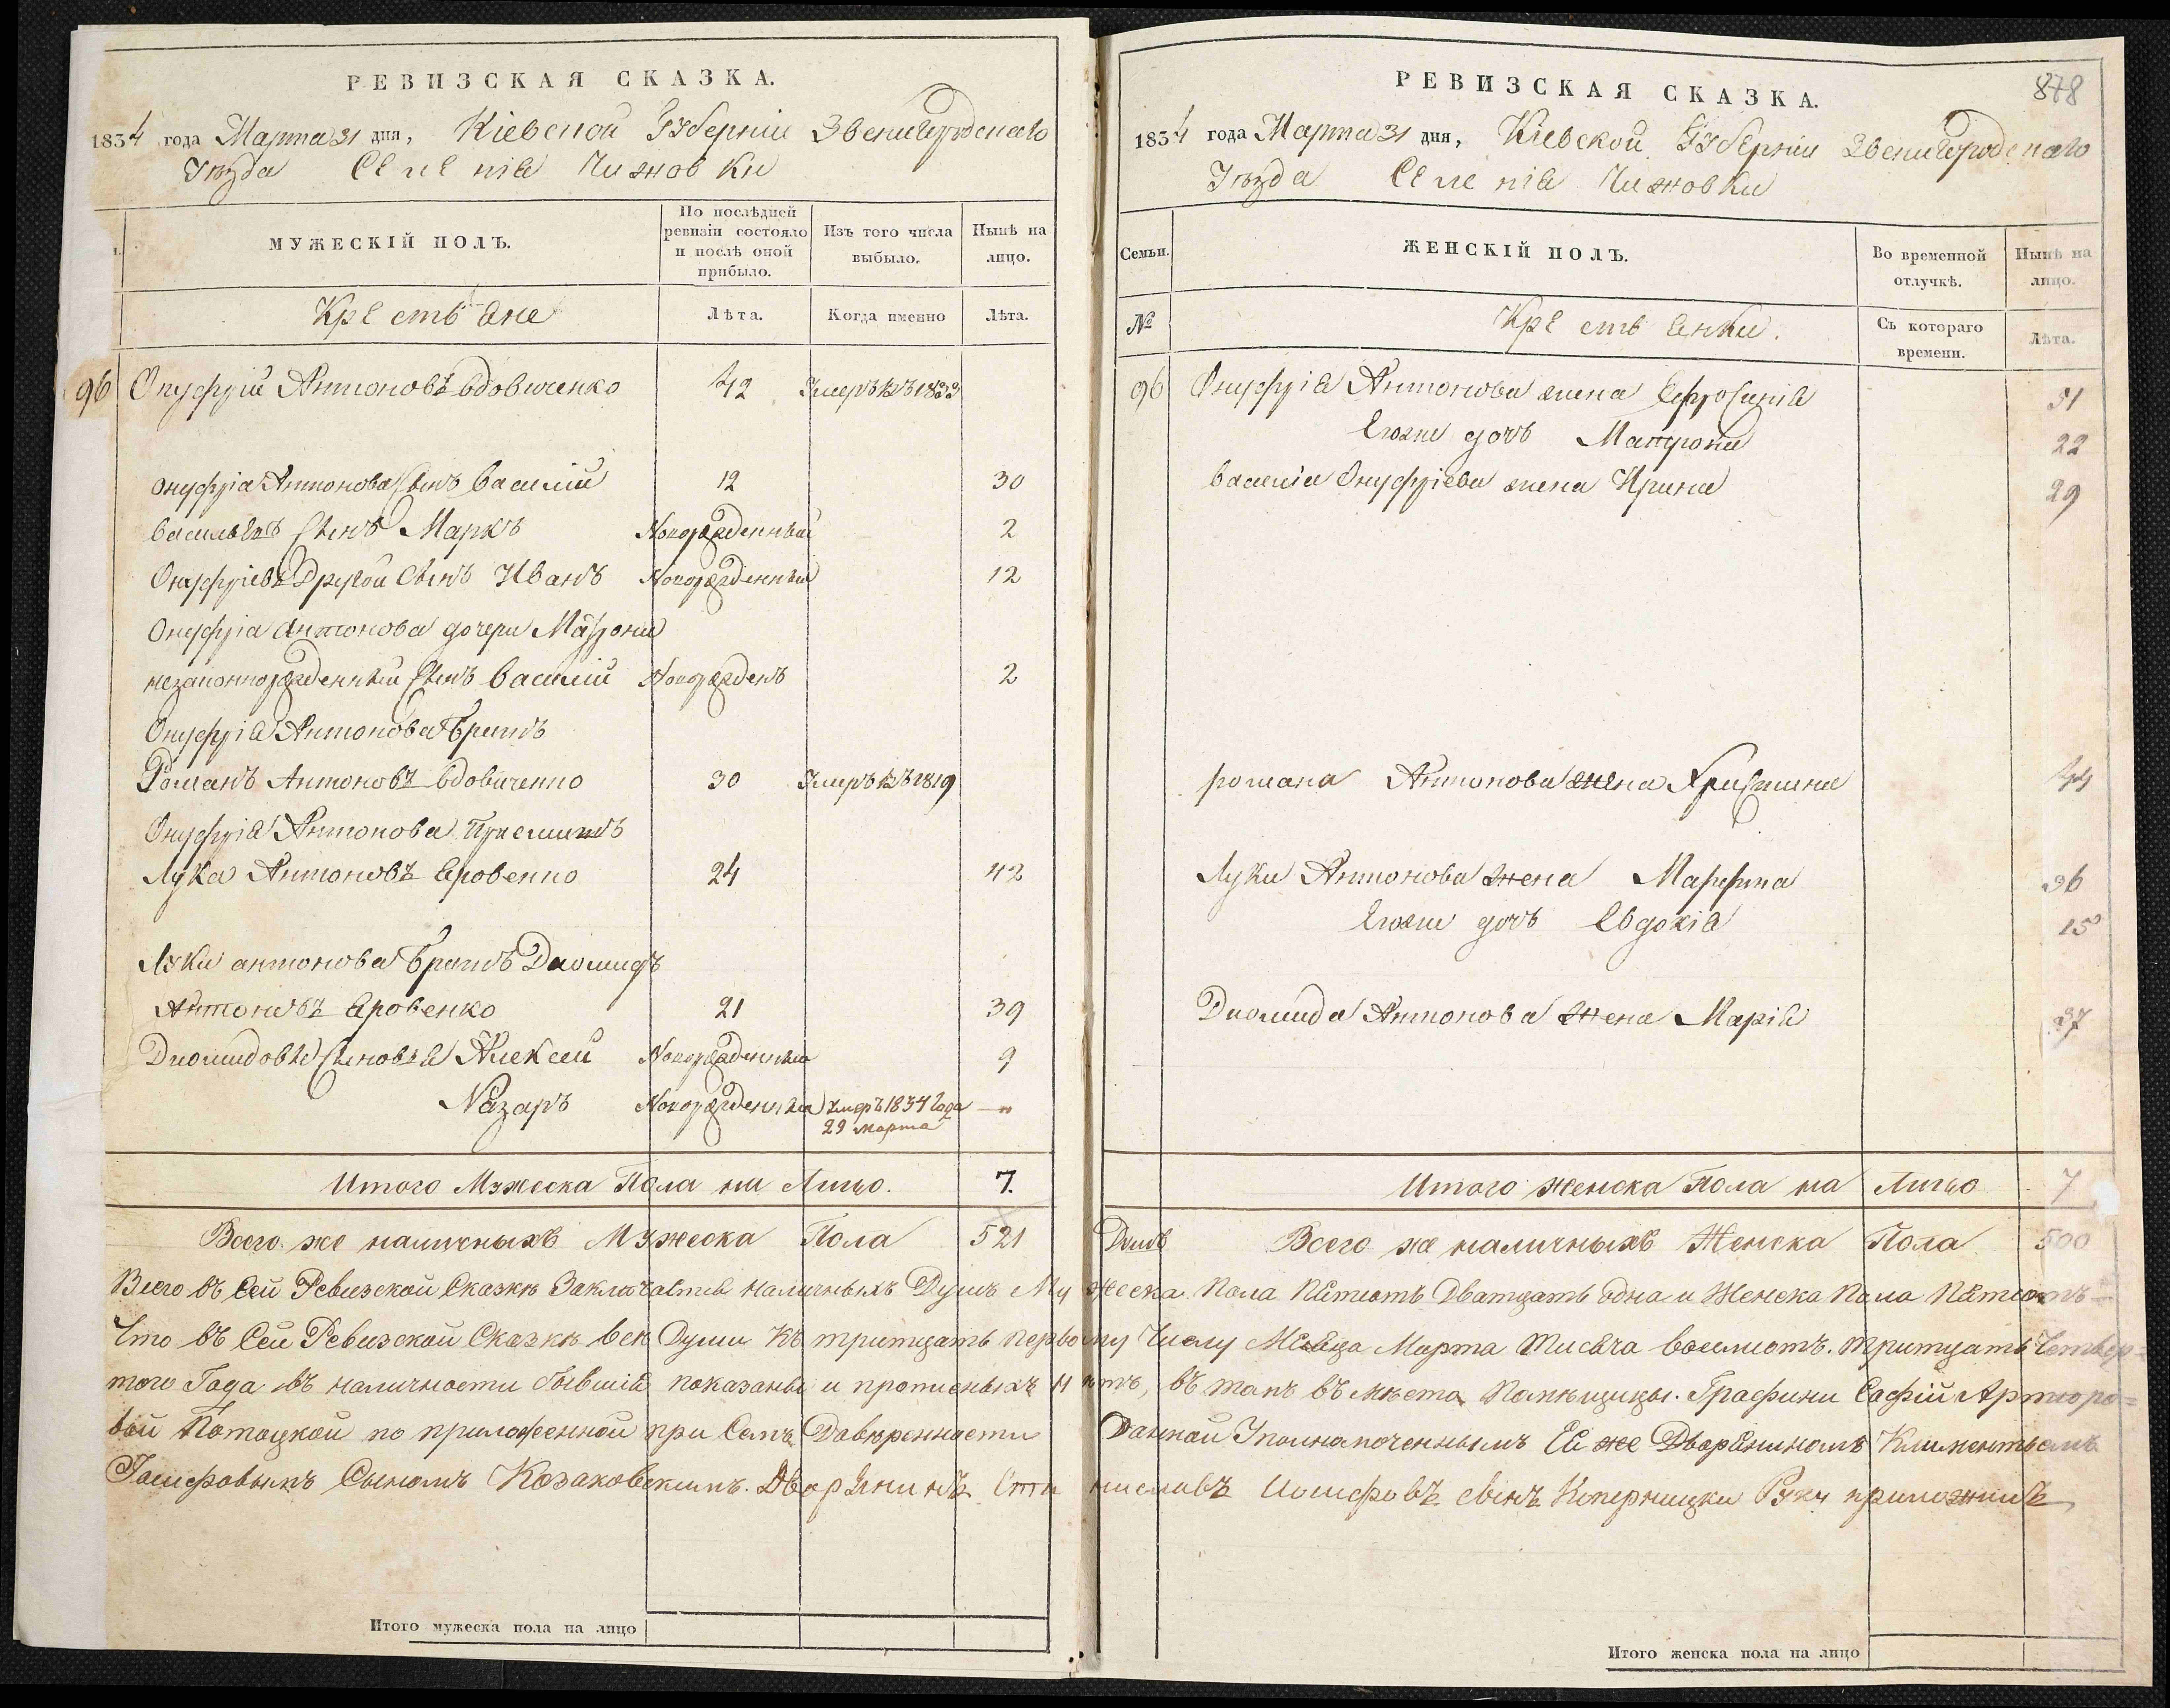 РЕВИЗСКАЯ СКАЗКА.
1834 года Марта 31 дня, Кіевской Губерніи Звенигородскаго
Уѣзда Селенія Чижовки
МУЖЕСКІЙ ПОЛЪ.
По послѣдней ревизіи состояло и послѣ оной прибыло.
Изъ того числа выбыло.
Нынѣ на лицо.
Крестьяне
Лѣта.
Когда именно
Лѣта.
96 Онуфрій Антоновъ Вдовиченко 42 Умеръ въ 1833
Онуфрія Антонова Сынъ Василій 12 30
Васильевъ Сынъ Маркъ Новорожденный 2
Онуфріевъ Другой Сынъ Иванъ Новорожденный 12
Онуфрія Антонова дочери Матроны
незаконнорожденный Сынъ Василій Новорожденъ 2
Онуфрія Антонова Братъ
Романъ Антоновъ Вдовиченко 30 Умеръ въ 1819
Онуфрія Антонова Приемышъ
Лука Антоновъ Яровенко 24 42
Луки Антонова Братъ Диомидъ
Антоновъ Яровенко 21 39
Диомидовы Сыновья Алексей Новорожденный 9
Назаръ Новорожденный умеръ 1834 Года 29 марта —
Итого Мужеска Пола на Лицо. 7.
Всего же наличныхъ Мужеска Пола 521
РЕВИЗСКАЯ СКАЗКА.
878
1834 года Марта 31 дня, Кіевской Губерніи Звенигородскаго
Уѣзда Селенія Чижовки
Семьи.
ЖЕНСКІЙ ПОЛЪ.
Во временной отлучкѣ.
Нынѣ на лицо.
№
Крестьянки.
Съ котораго времени.
Лѣта.
96 Онуфрія Антонова жена Ефросинія 51
Егоже дочь Матрона 22
Василія Онуфріева жена Ирина 29
Романа Антонова жена Христина 44
Луки Антонова жена Марфа 36
Егоже дочь Евдокія 15
Диомида Антонова жена Марія 37
Итого женска Пола на Лицо 7
Душъ Всего же наличныхъ Женска Пола 500
Всего въ Сей Ревизской Сказкѣ Заключается наличныхъ Душъ Мужеска Пола Пятьсотъ Дватцать одна и Женска Пола Пятьсотъ
Что въ Сей Ревизской Сказкѣ всѣ Души къ тритцать первому Числу Месяца Марта Тисяча восемсотъ тритцать Четвер=
того Года въ наличности бывшія показаны и прописныхъ нѣтъ, въ томъ въ мѣсто Помѣщицы Графини Софій Артюро=
вой Потоцкой по приложенной при Семъ Довѣренности Данной Уполномоченнымъ Ей же Дворяниномъ Климентьемъ
Іосифовымъ Сыномъ Козаковскимъ. Дворянинъ Станиславъ Иосифовъ сынъ Коперницки Руку приложилъ
Итого мужеска пола на лицо
Итого женска пола на лицо